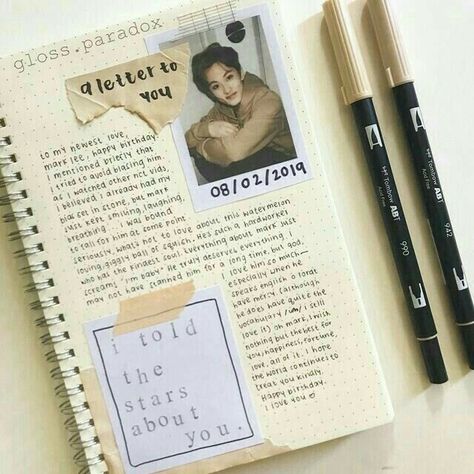 gloss.paradox
a letter to
you
08/02/2019
to my newest love,
mark lee, happy birthday
I mentioned briefly that
I tried to avoid biasing him.
as I watched other nct vids,
I believed I already had my
bias set in stone, but mark
just kept smiling, laughing,
breathing. I was bound
to fall for him at some point
seriously. what's not to love about this watermelon
loving, giggly ball of squish. He's such a hardworker
who has the kindest soul. Everything about mark just
screams, "I'm baby." He truly deserves everything. I
may not have stanned him for a long time but god,
I love him so much—
especially when he
speaks english o lordt
have mercy. (although
he does have quite the
vocabulary /um/ i still
love it) oh mark, I wish
nothing but the best for
you, happiness, fortune,
love, all of it. I hope
the world continues to
treat you kindly.
Happy birthday.
I love you
i told
the
stars
about
you.
Tombow ABT
990
Tombow ABT
942